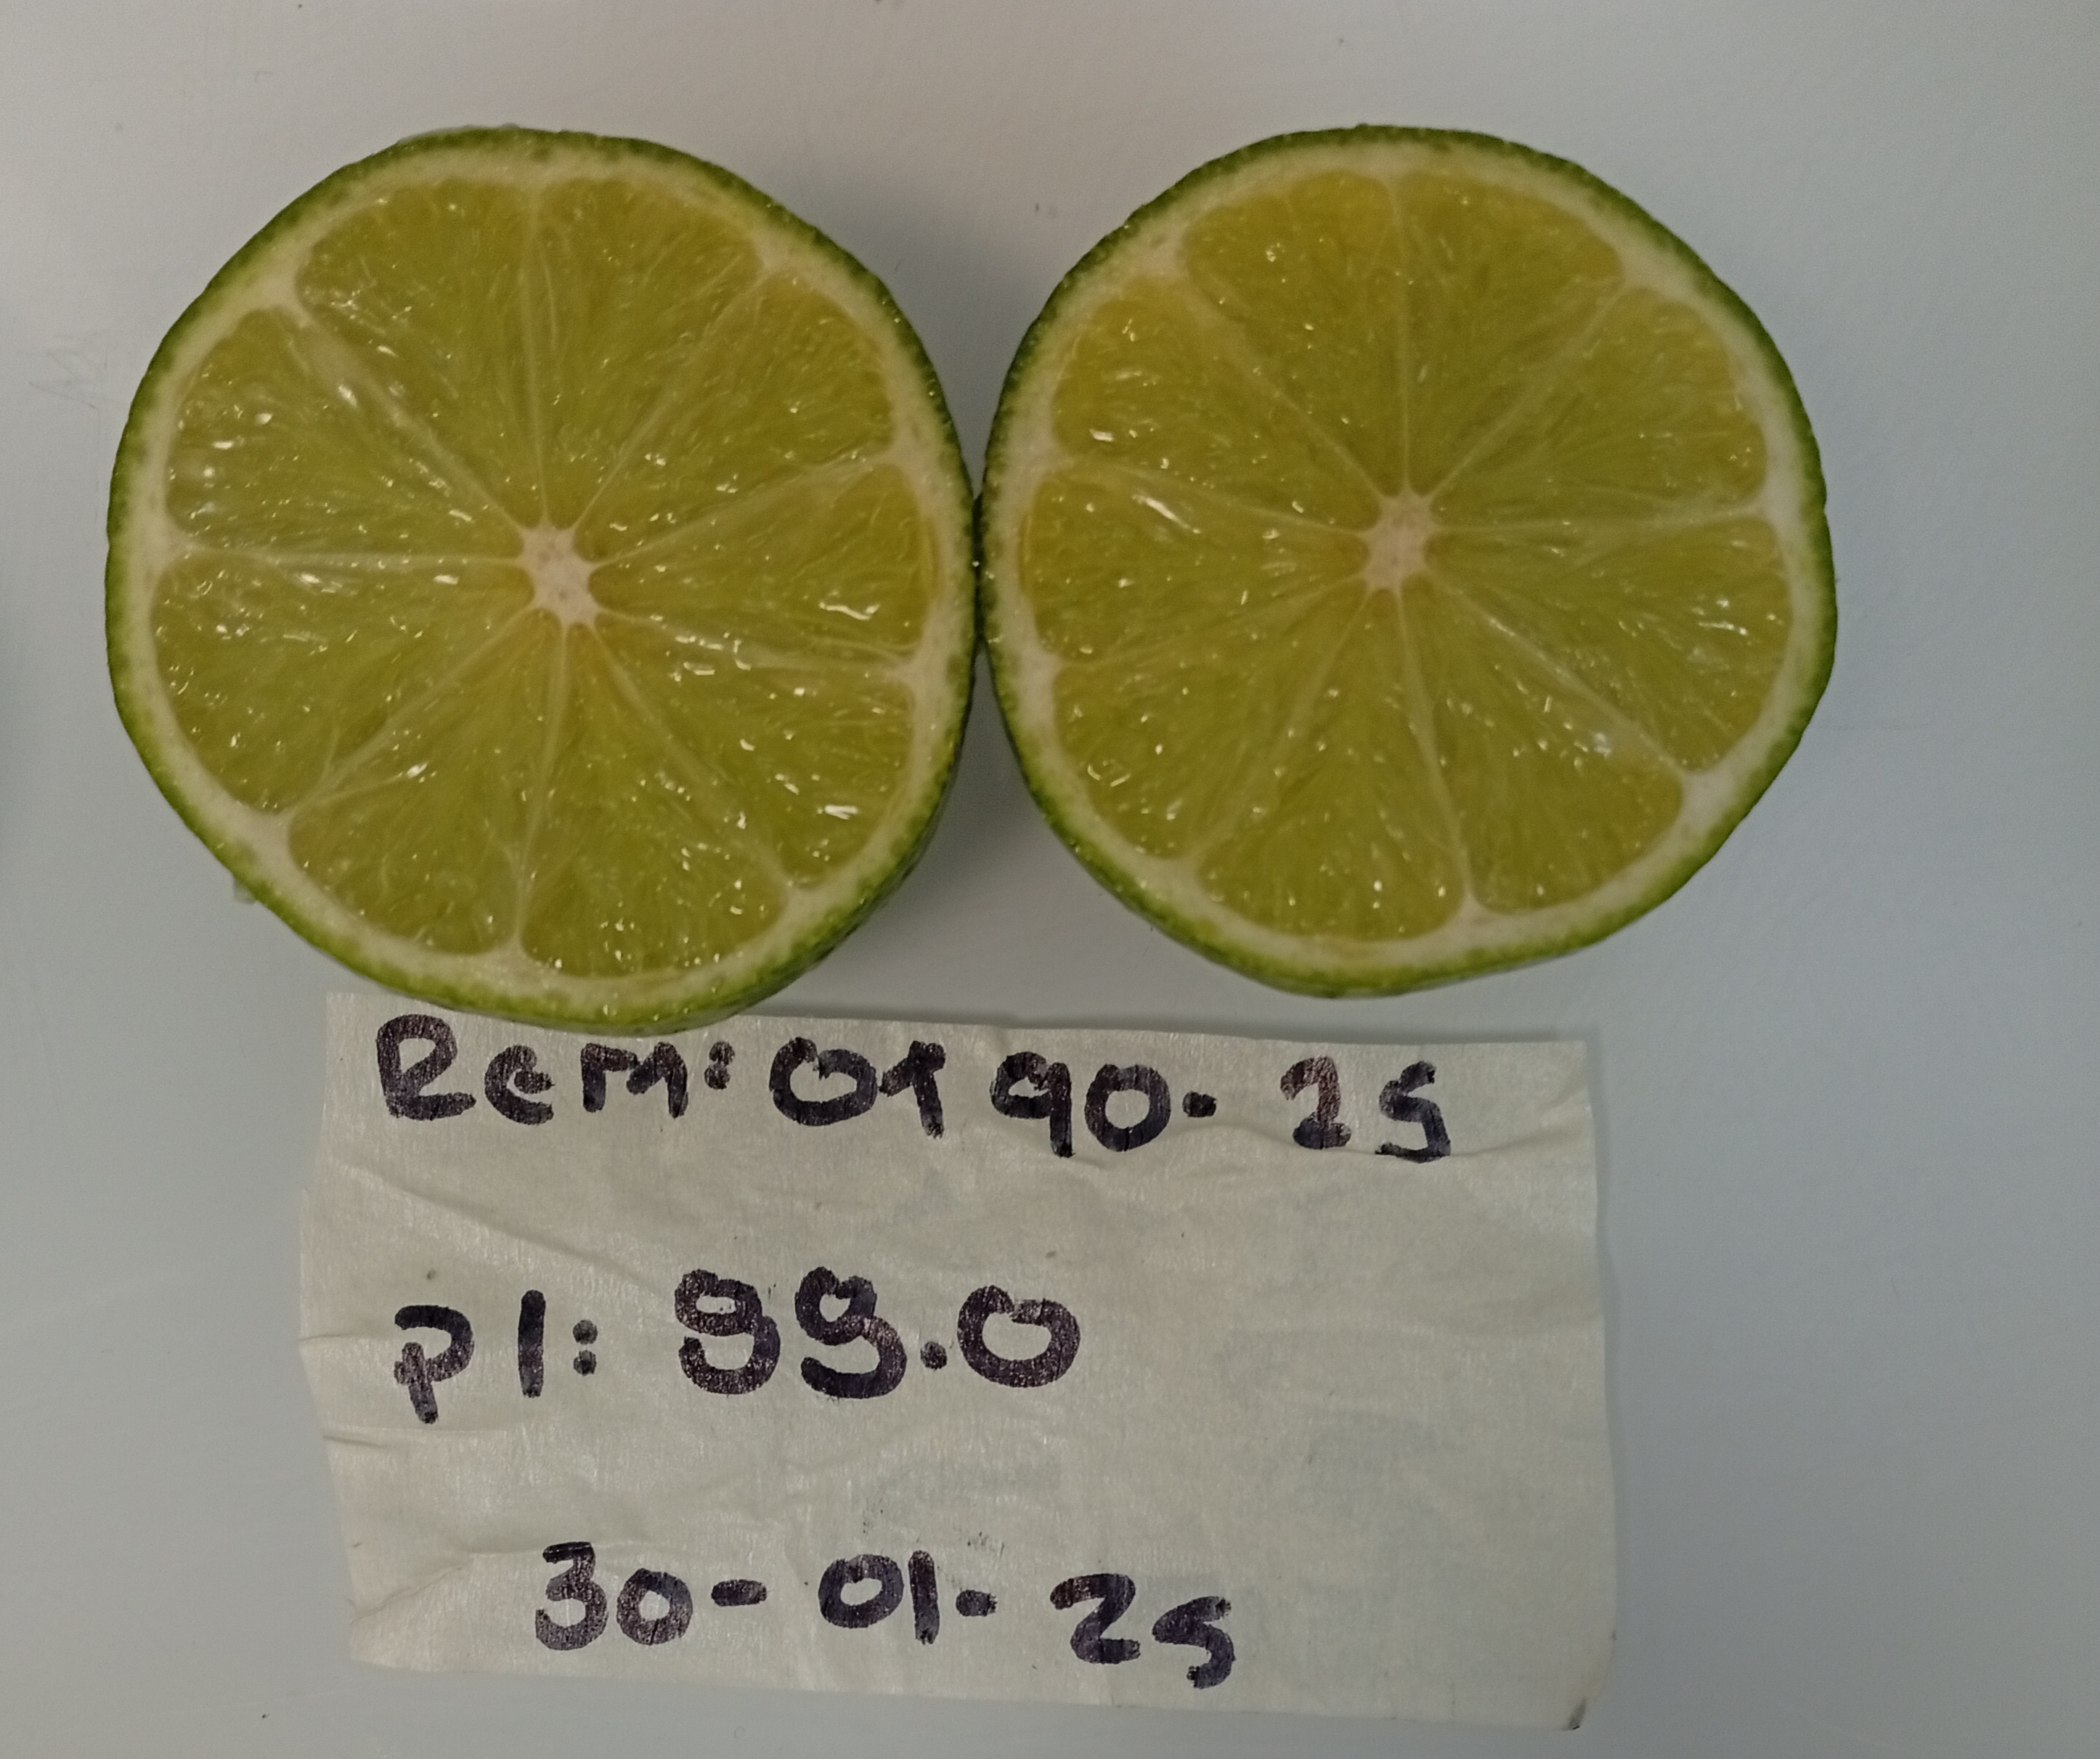 Rem: 0190-25
pl: 99.0
30-01-25